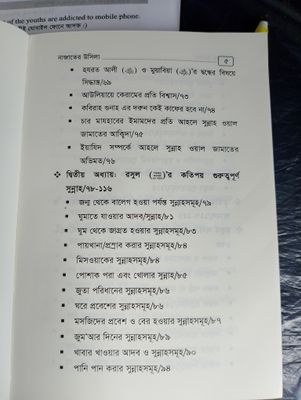 of the youths are addicted to mobile phone.
মোবাইল ফোনে আসক্ত।)
নাজাতের উসিলা ৫
হযরত আলী (রাঃ) ও মুয়াবিয়া (রাঃ)'র দ্বন্ধের বিষয়ে
সিদ্ধান্ত/৬৯
আউলিয়ায়ে কেরামের প্রতি বিশ্বাস/৭৩
কবিরাহ গুনাহ এর দরুন কেই কাফের হবে না/৭৪
চার মাযহাবের ইমামদের প্রতি আহলে সুন্নাহ ওয়াল
জামাতের আক্বিদা/৭৫
ইয়াযিদ সম্পর্কে আহলে সুন্নাহ ওয়াল জামাতের
অভিমত/৭৬
দ্বিতীয় অধ্যায়: রসুল (ﷺ)'র কতিপয় গুরুত্বপূর্ণ
সুন্নাহ/৭৮-১১৬
জন্ম থেকে বালেগ হওয়া পর্যন্ত সুন্নাহসমূহ/৭৯
ঘুমাতে যাওয়ার আদব/সুন্নাহ/৮১
ঘুম থেকে জাগ্রত হওয়ার সুন্নাহসমূহ/৮৩
পায়খানা/প্রস্রাব করার সুন্নাহসমূহ/৮৪
মিসওয়াকের সুন্নাহসমূহ/৮৪
পোশাক পরা এবং খোলার সুন্নাহ/৮৫
জুতা পরিধানের সুন্নাহসমূহ/৮৬
ঘরে প্রবেশের সুন্নাহসমূহ/৮৬
মসজিদের প্রবেশ ও বের হওয়ার সুন্নাহসমূহ/৮৭
জুম'আর দিনের সুন্নাহসমূহ/৮৯
খাবার খাওয়ার আদব ও সুন্নাহসমূহ/৯০
পানি পান করার সুন্নাহসমূহ/৯৪